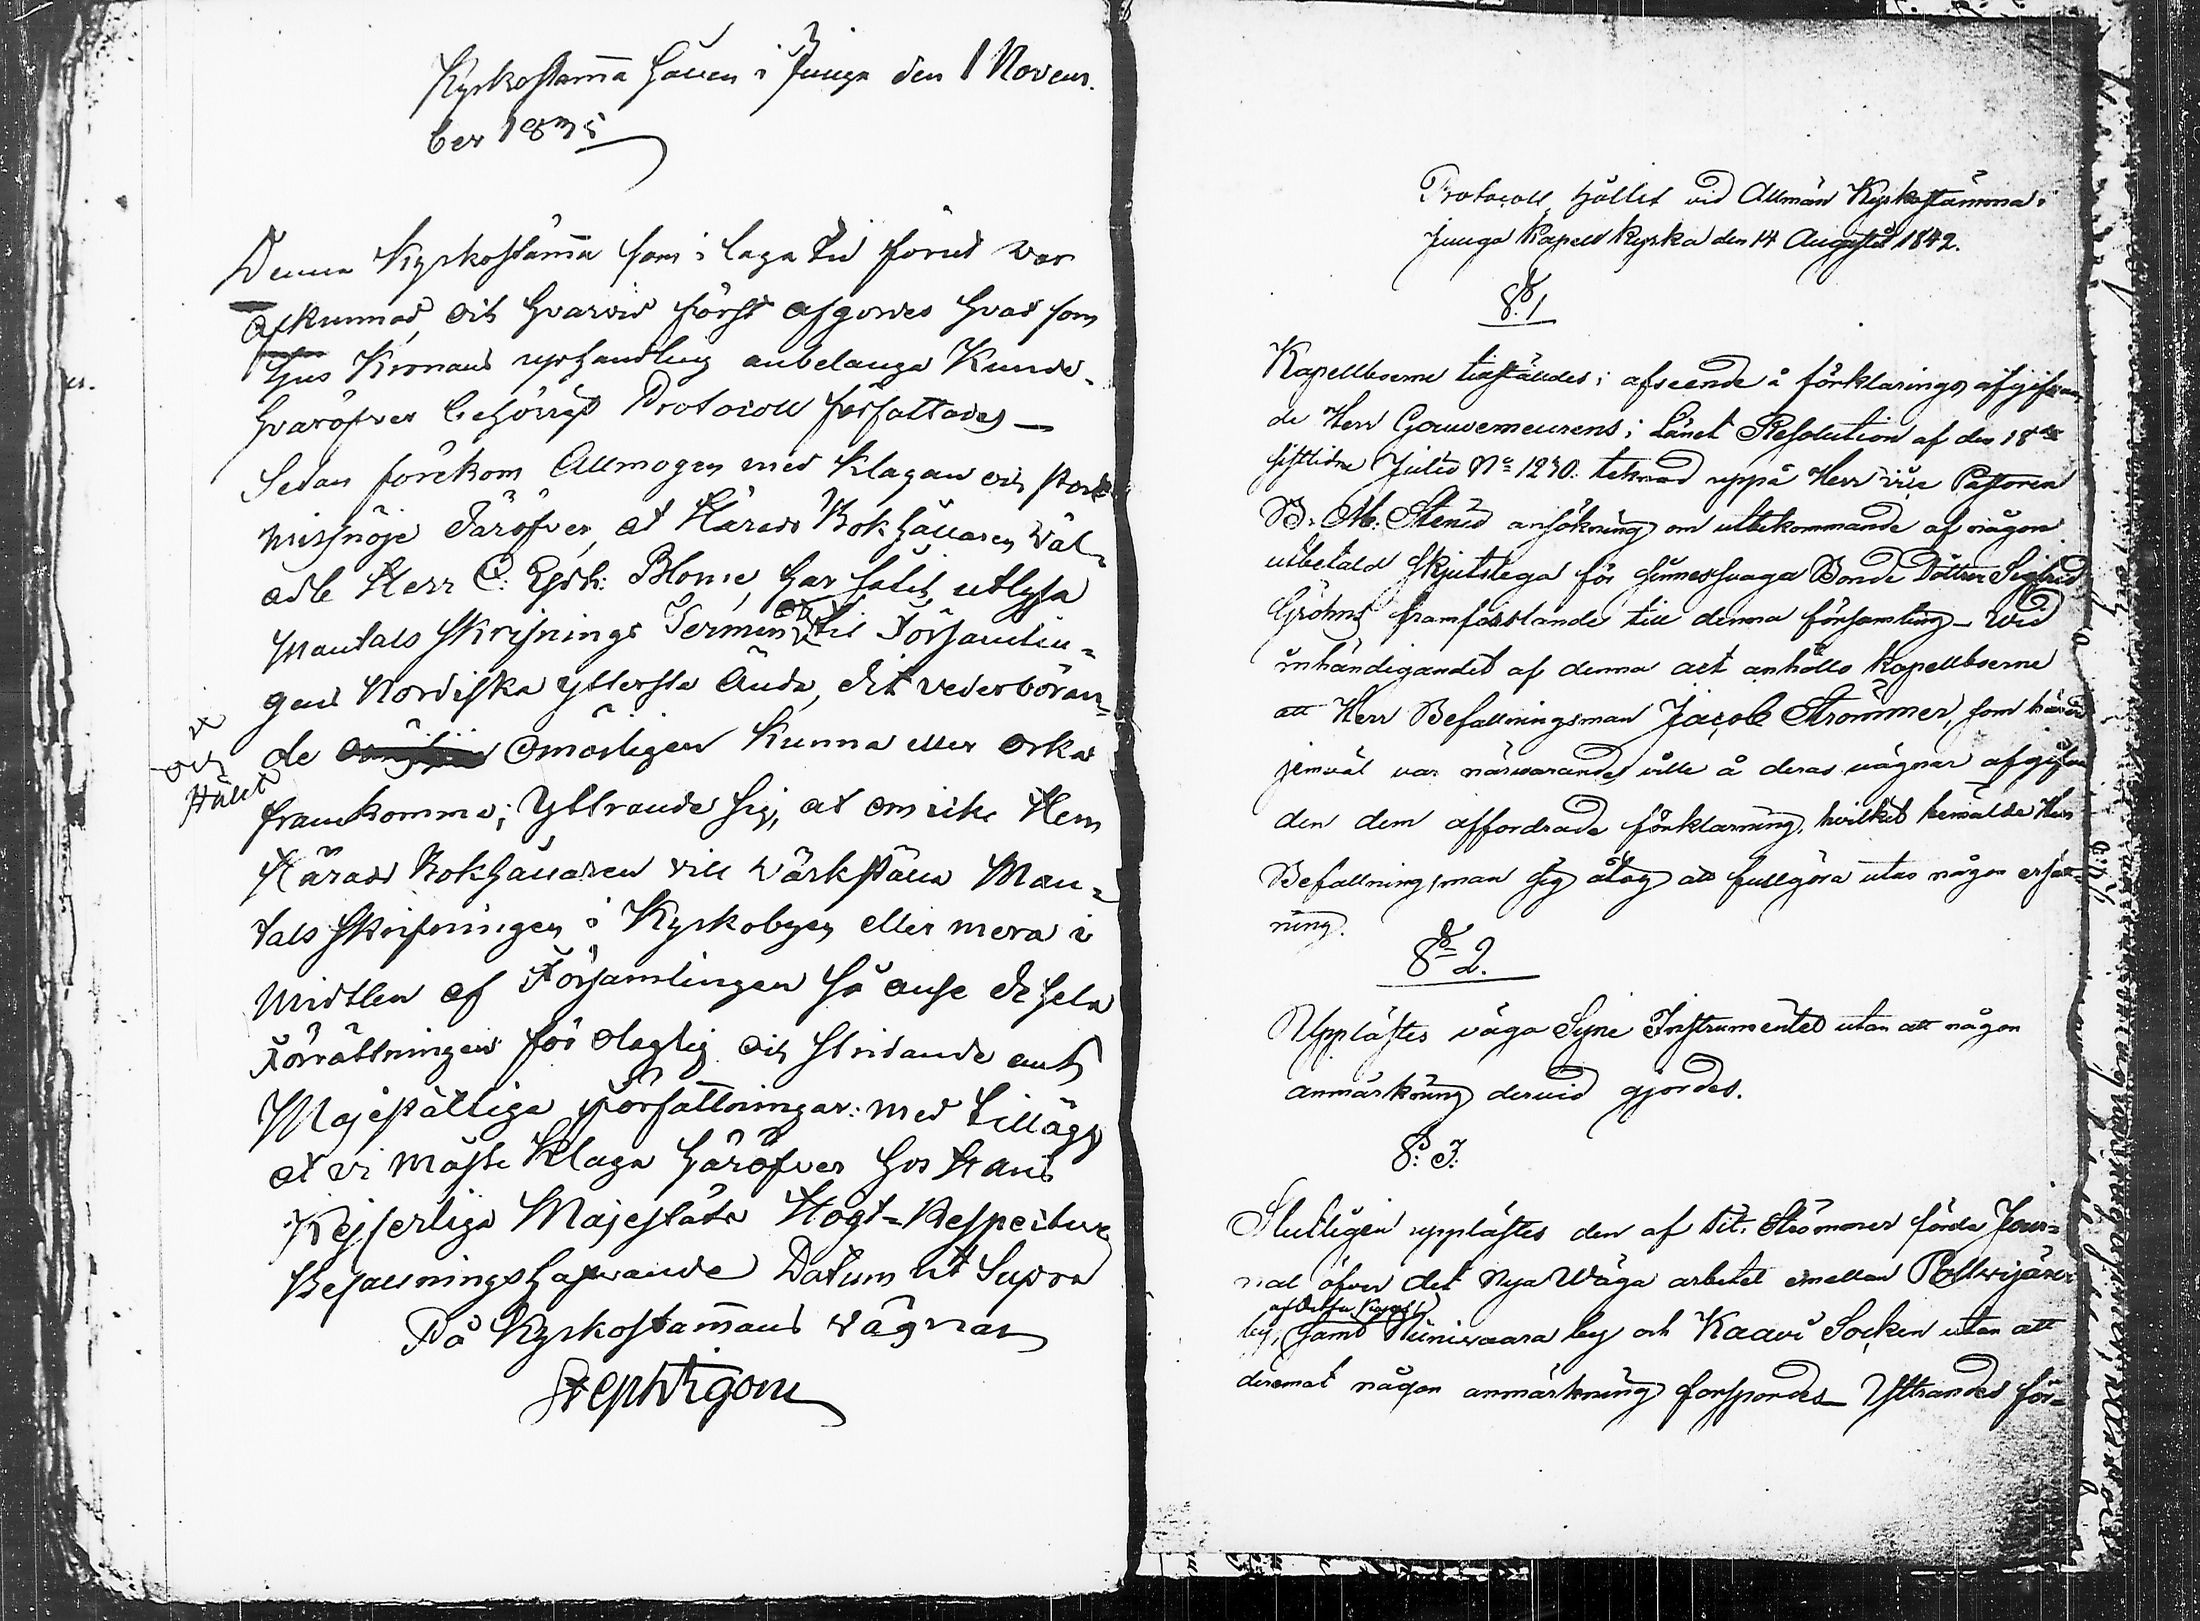 Kyrkostam̄a hållen i Juuga den 1 Novem.
ber 1835
Denna Kyrkostäm̄a som i laga tid förut var
afkunnad, och hvarvid först afgordes hvad som
Hus Kronans upphandling anbelanga Kunde,
hvaröfver behörigt Protocoll författades —
Sedan förekom Allmogen med Klagan och stort
missnöje däröfver, at Härads Bokhållaren Wäl-
adle Herr C: Blome, har låtit utlysa
Mantals Skrifnings Termin til Församlin-
gens Nordiska yttersta Ända, dit vederböran-
de omöiligen Kunna eller orka
framkomma; Yttrande sig, at om icke Herr
Härads Bokhållaren vill värkställa Man-
tals Skrifningen i Kyrkobyen eller mera i
midtlen af Församlingen så anse de hela
Förrättningen för olaglig och stridande mot
Majestätliga författningar: med tillägg
at vi måste Klaga häröfver hos Hans
Kejserliga Majestäts Högt-Respective
Befallningshafvande Datum ut Supra
På Kyrkostam̄ans vägnar
och
Protocoll, hållet vid Allmän Kyrkostämma i
Juuga Kapell Kyrka den 14 Augusti 1842.
§ 1
Kapellboerne tillställdes i afseende å förklarings afgifvan-
de Herr Gouverneurens i Länet Resolution af den 18de
sistlidne Julii No 1230. teknad uppå Herr vice Pastoren
B. M. Stenii ansökning om utbekommande af någon
utbetald skjutslega för sinnessvaga Bonde Dottren Sigfrid
Gröhns framforslande till denna församling — Wid
inhändigandet af denna act anhöllo Kapellboerne
att Herr Befallningsman Jacob Strömmer, som härvid
jemväl var närvarande, ville å deras vägnar afgifva
den dem affordrade förklarning, hvilket bemälde Herr
Befallningsman sig åtog att fullgöra utan någon ersätt-
ning.
§ 2.
Upplästes väga Syne Instrumentet utan att någon
anmärkning dervid gjordes.
§. 3.
Slutligen upplästes den af tit. Strömmer förda Jour-
nal öfver det Nya Wäga arbetet emellan Polvijärvi
af detta Kapell
by, samt Niinivaara by och Kaavi Socken utan att
deremot någon anmärkning forspordes — Yttrandes för-